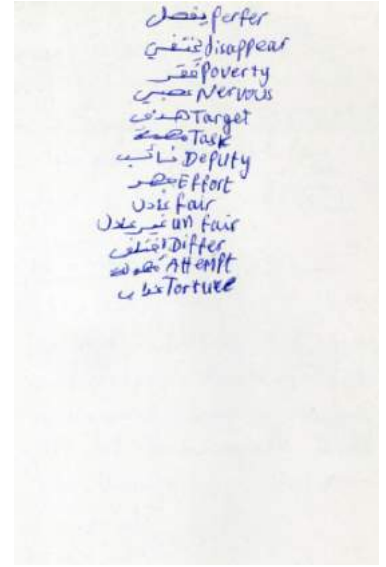 يفضل perfer
يختفي disappear
فقر Poverty
عصبي Nervous
هدف Target
مهمة Task
نائب Deputy
Effort
عادل fair
غير عادل un fair
اختلف Differ
Attempt
عذاب Torture